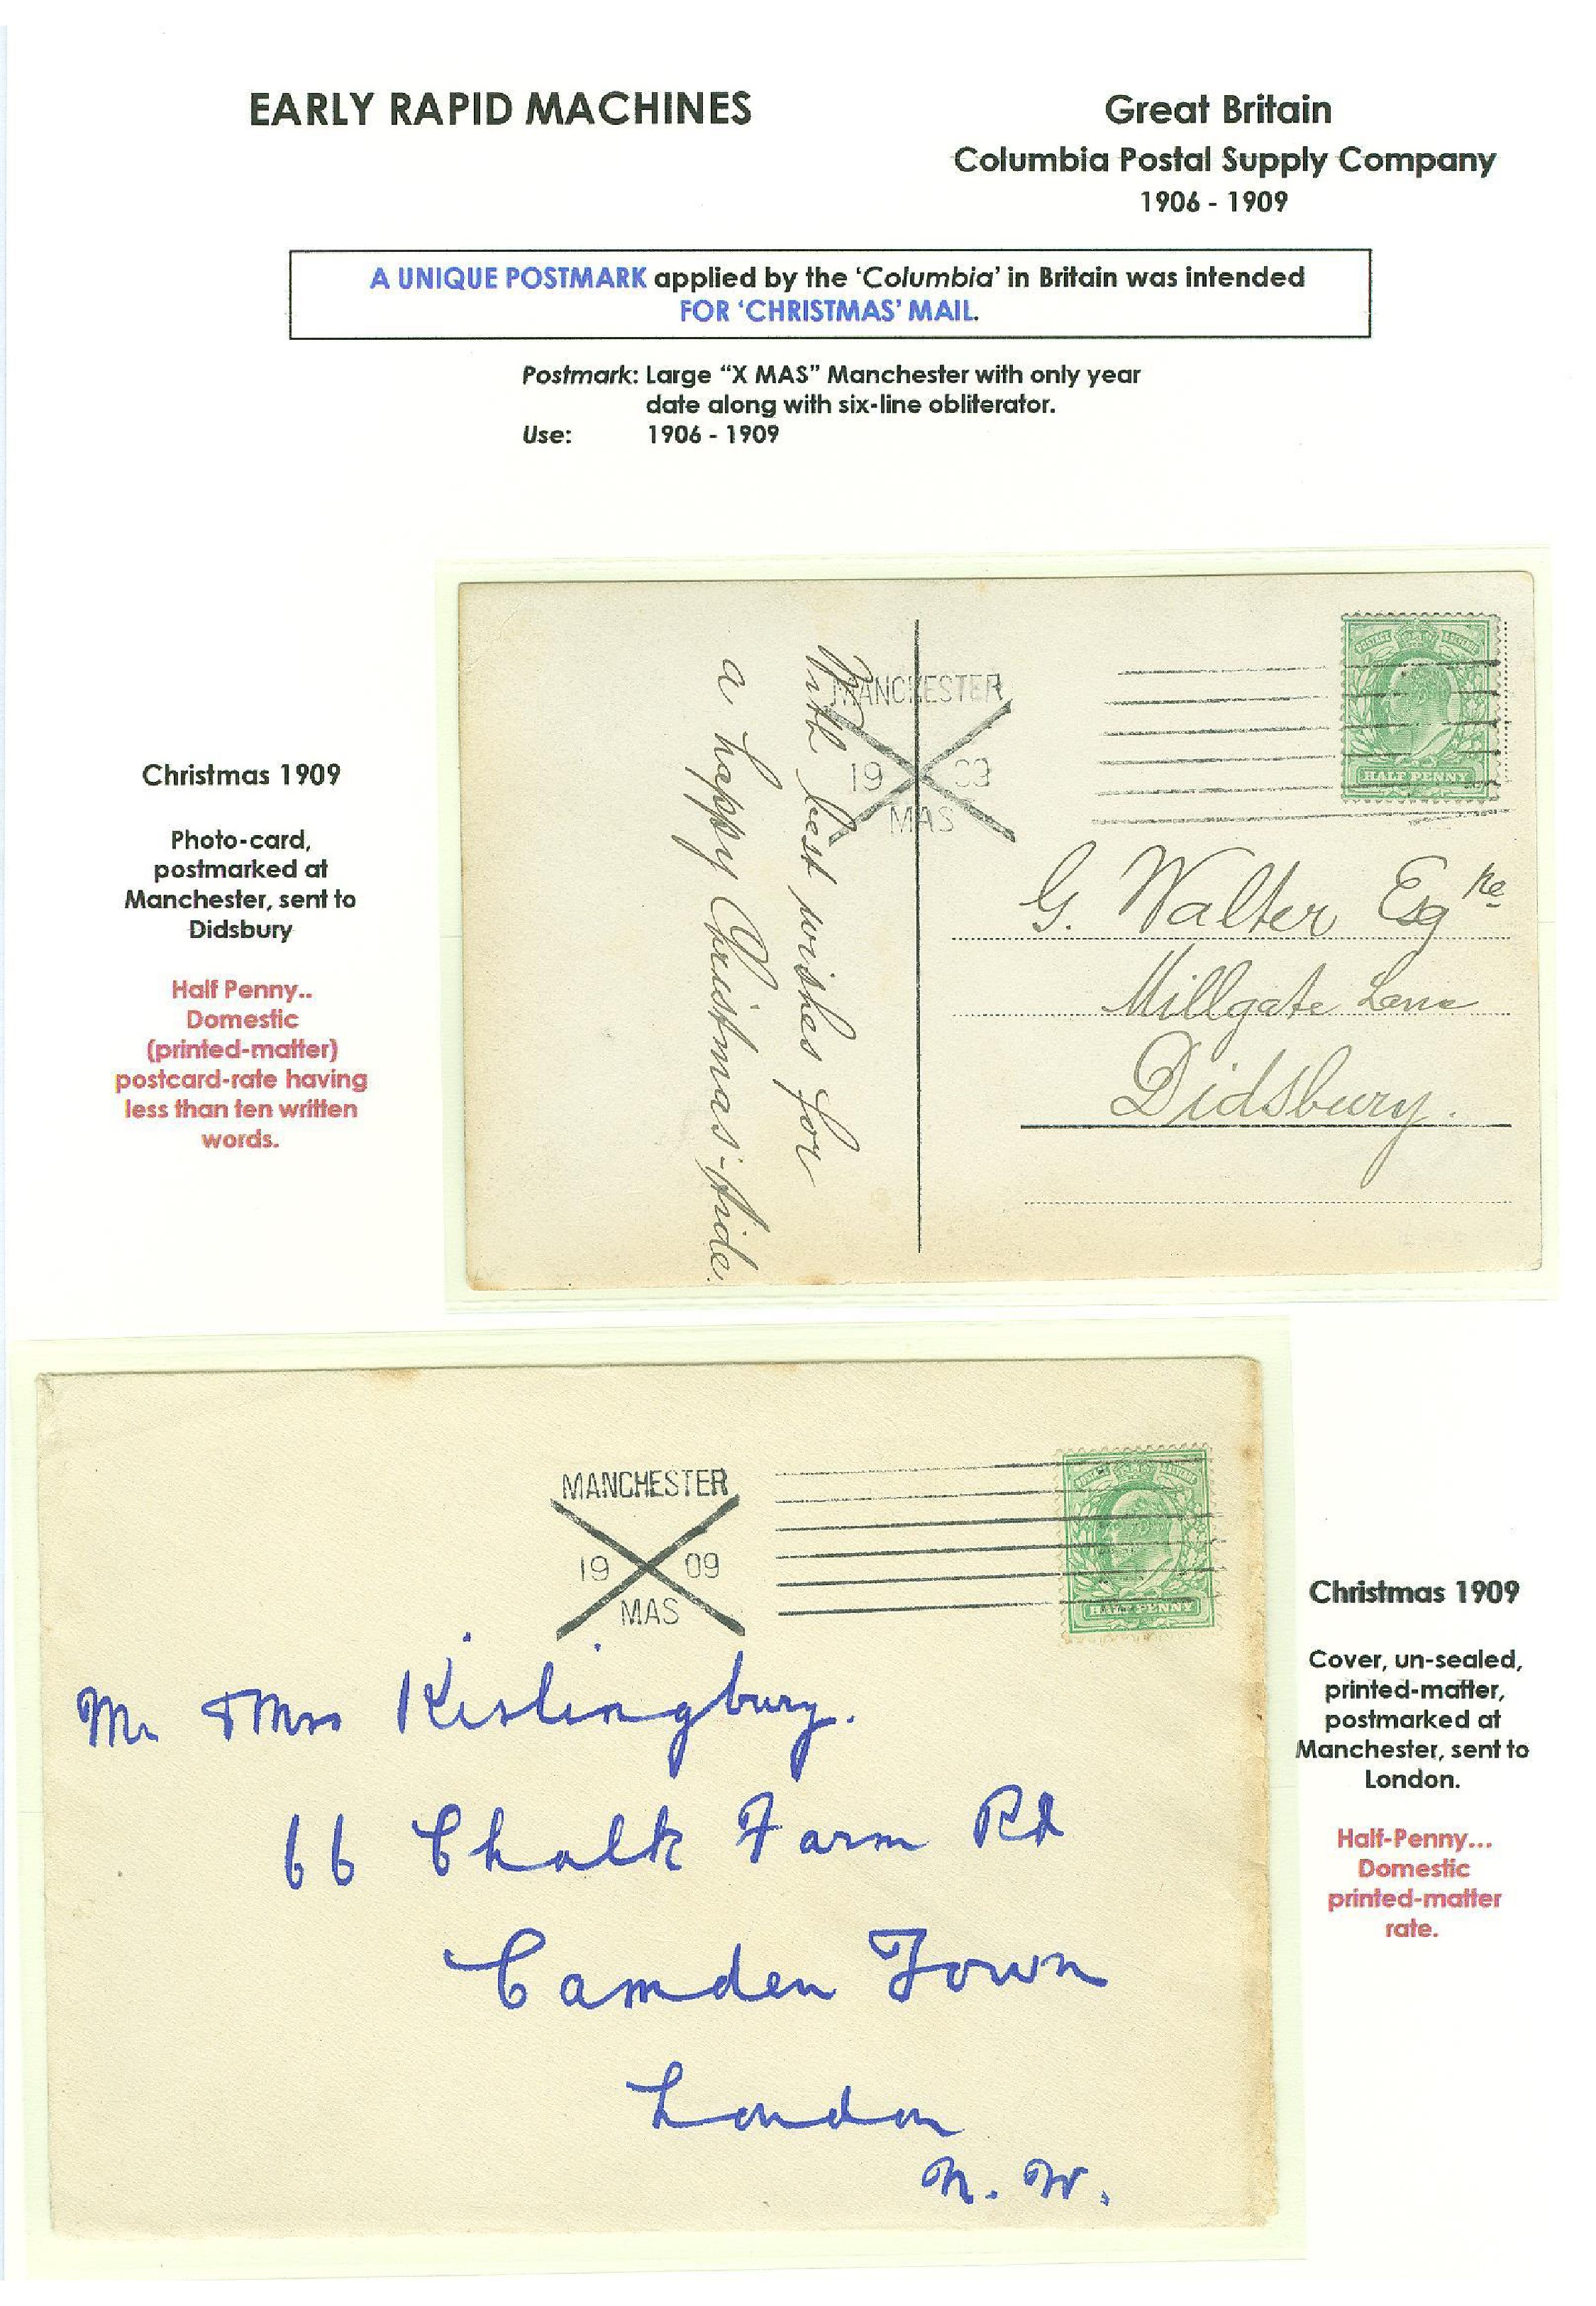 EARLY RAPID MACHINES
Great Britain
Columbia Postal Supply Company
1906 - 1909
A UNIQUE POSTMARK applied by the ‘Columbia’ in Britain was intended
FOR ‘CHRISTMAS’ MAIL.
Postmark: Large “X MAS” Manchester with only year
date along with six-line obliterator.
Use: 1906 - 1909
Christmas 1909
Photo-card,
postmarked at
Manchester, sent to
Didsbury
Half Penny..
Domestic
(printed-matter)
postcard-rate having
less than ten written
words.
With best wishes for
a happy Christmas-tide.
MANCHESTER
19 09
MAS
POSTAGE & REVENUE
HALF PENNY
G. Walter Esqre
Millgate Lane
Didsbury.
MANCHESTER
19 09
MAS
HALF PENNY
Mr & Mrs Kislingbury.
66 Chalk Farm Rd
Camden Town
London
N. W.
Christmas 1909
Cover, un-sealed,
printed-matter,
postmarked at
Manchester, sent to
London.
Half-Penny...
Domestic
printed-matter
rate.